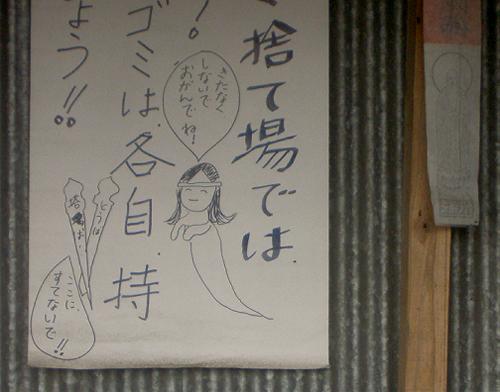 捨て場では、
！
ゴミは、各自、持
ょう!!
きたなく
しないで
おがんでね！
とうば
塔婆は、
ここに、
すてないで!!